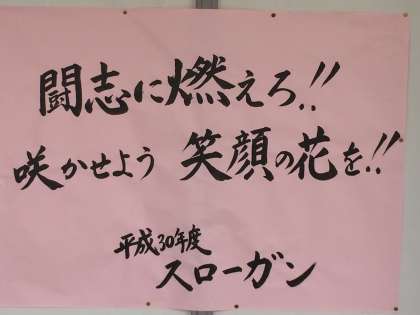 闘志に燃えろ!!
咲かせよう 笑顔の花を!!
平成30年度
スローガン